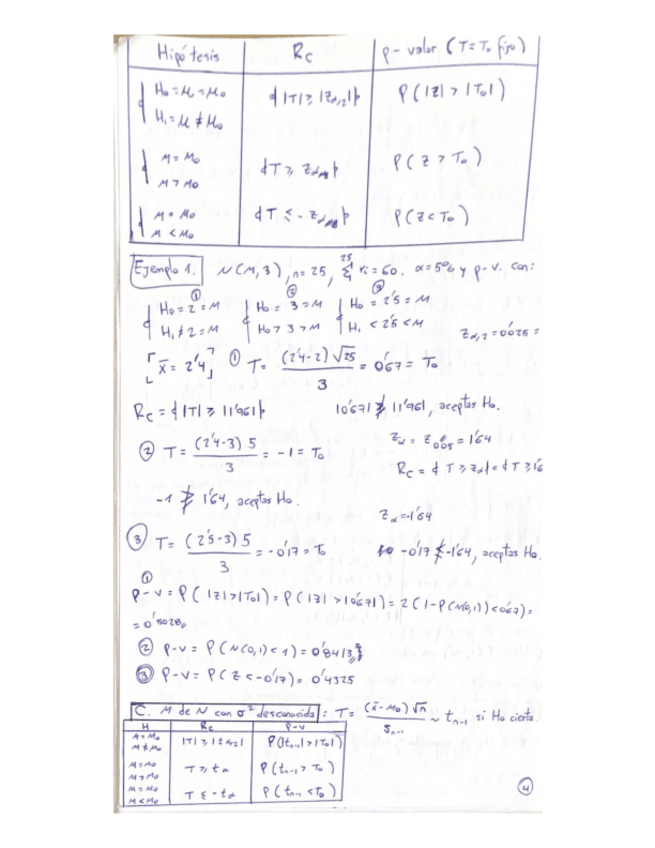 Hipótesis Rc p-valor (T=To fijo)
{ Ho = μ = μo {|T| ≥ |Zα/2|} P(|Z| > |To|)
H1 = μ ≠ μo
{ μ = μo {T ≥ Zα} P(Z > To)
μ > μo
{ μ = μo {T ≤ -Zα} P(Z < To)
μ < μo
Ejemplo 1. N(μ, 3), n = 25, Σ xi = 60. α = 5% y p-v. con:
① ② ③
{ Ho = 2 = μ { Ho = 3 = μ { Ho = 2'5 = μ
H1 ≠ 2 = μ Ho > 3 > μ H1 < 2'5 < μ
Zα/2 = 0'025 =
[x̄ = 2'4] ① T = (2'4-2)√25 / 3 = 0'67 = To
Rc = {|T| ≥ |1'96|} |0'67| ≱ |1'96|, aceptas Ho.
② T = (2'4-3) 5 / 3 = -1 = To
Zα = Z0'05 = 1'64
Rc = {T ≥ Zα} = {T ≥ 1'6
-1 ≱ 1'64, aceptas Ho.
Zα = -1'64
③ T = (2'5-3) 5 / 3 = -0'17 = To
-0'17 ≮ -1'64, aceptas Ho.
①
p-v = P(|Z| > |To|) = P(|Z| > |0'67|) = 2(1-P(N(0,1)) < 0'67) =
= 0'5028
② p-v = P(N(0,1) < 1) = 0'8413
③ p-v = P(Z < -0'17) = 0'4325
C. μ de N con σ² desconocida: T = (x̄ - μo)√n / Sn-1 ~ tn-1 si Ho cierta.
H Rc P-v
μ = μo |T| ≥ |tα/2| P(|tn-1| > |To|)
μ ≠ μo
μ = μo T ≥ tα P(tn-1 > To)
μ > μo
μ = μo T ≤ -tα P(tn-1 < To)
μ < μo
④